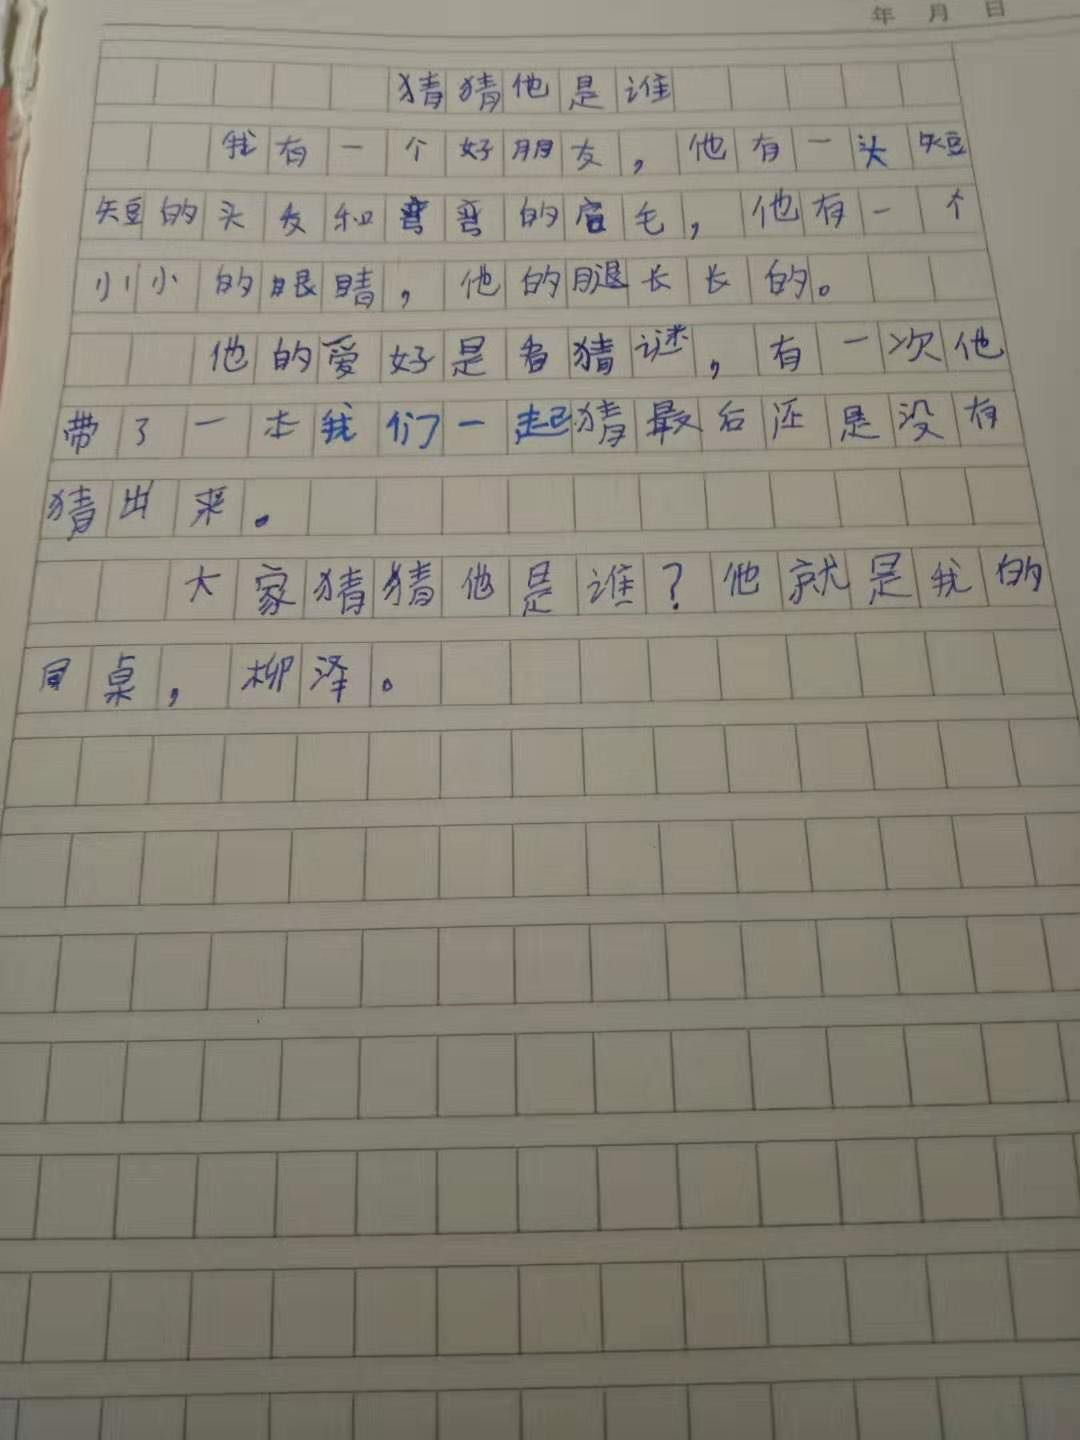 年 月 日
猜猜他是谁
我有一个好朋友，他有一头短
短的头发和弯弯的眉毛，他有一个
小小的眼睛，他的腿长长的。
他的爱好是看猜谜，有一次他
带了一本我们一起猜最后还是没有
猜出来。
大家猜猜他是谁？他就是我的
同桌，柳泽。